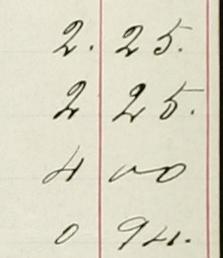 2. 25.
2 25.
4 00
0 94.